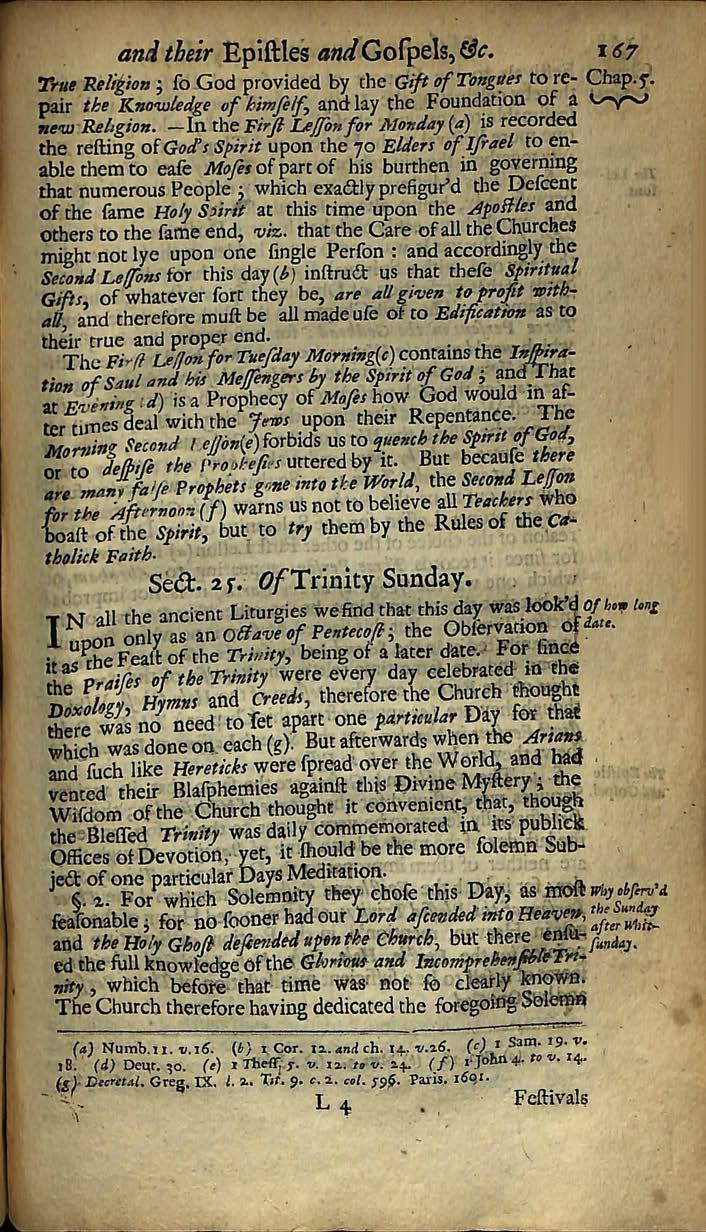 and their Epiſtles and Goſpels, &c. 167
Chap. 5.
True Religion ; ſo God provided by the Gift of Tongues to re-
pair the Knowledge of himſelf, and lay the Foundation of a
new Religion. —In the Firſt Leſſon for Monday (a) is recorded
the reſting of God's Spirit upon the 70 Elders of Iſrael to en-
able them to eaſe Moſes of part of his burthen in governing
that numerous People ; which exactly prefigur'd the Deſcent
of the ſame Holy Spirit at this time upon the Apoſtles and
others to the ſame end, viz. that the Care of all the Churches
might not lye upon one ſingle Perſon : and accordingly the
Second Leſſons for this day (b) inſtruct us that theſe Spiritual
Gifts, of whatever ſort they be, are all given to profit with-
all, and therefore muſt be all made uſe of to Edification as to
their true and proper end.
The Firſt Leſſon for Tueſday Morning(c) contains the Inſpira-
tion of Saul and his Meſſengers by the Spirit of God ; and That
at Evening (d) is a Prophecy of Moſes how God would in af-
ter times deal with the Jews upon their Repentance. The
Morning Second Leſſon(e) forbids us to quench the Spirit of God,
or to deſpiſe the Propheſies uttered by it. But becauſe there
are many falſe Prophets gone into the World, the Second Leſſon
for the Afternoon (f) warns us not to believe all Teachers who
boaſt of the Spirit, but to try them by the Rules of the Ca-
tholick Faith.
Sect. 25. Of Trinity Sunday.
IN all the ancient Liturgies we find that this day was look'd
upon only as an Octave of Pentecoſt ; the Obſervation of
it as the Feaſt of the Trinity, being of a later date. For ſince
the Praiſes of the Trinity were every day celebrated in the
Doxology, Hymns and Creeds, therefore the Church thought
there was no need to ſet apart one particular Day for that
which was done on each (g). But afterwards when the Arians
and ſuch like Hereticks were ſpread over the World, and had
vented their Blaſphemies againſt this Divine Myſtery ; the
Wiſdom of the Church thought it convenient, that, though
the Bleſſed Trinity was daily commemorated in its publick
Offices of Devotion, yet, it ſhould be the more ſolemn Sub-
ject of one particular Days Meditation.
Of how long
date.
§. 2. For which Solemnity they choſe this Day, as moſt
ſeaſonable ; for no ſooner had our Lord aſcended into Heaven,
and the Holy Ghoſt deſcended upon the Church, but there enſu-
ed the full knowledge of the Glorious and Incomprehenſible Tri-
nity, which before that time was not ſo clearly known.
The Church therefore having dedicated the foregoing Solemn
Why obſerv'd
the Sunday
after Whit-
ſunday.
(a) Numb. 11. v.16. (b) 1 Cor. 12. and ch. 14. v.26. (c) 1 Sam. 19. v.
18. (d) Deut. 30. (e) 1 Theſſ. 5. v. 12. to v. 24. (f) 1 John 4. to v. 14.
(g) Decretal. Greg. IX. l. 2. Tit. 9. c. 2. col. 596. Paris. 1601.
L 4 Feſtivals